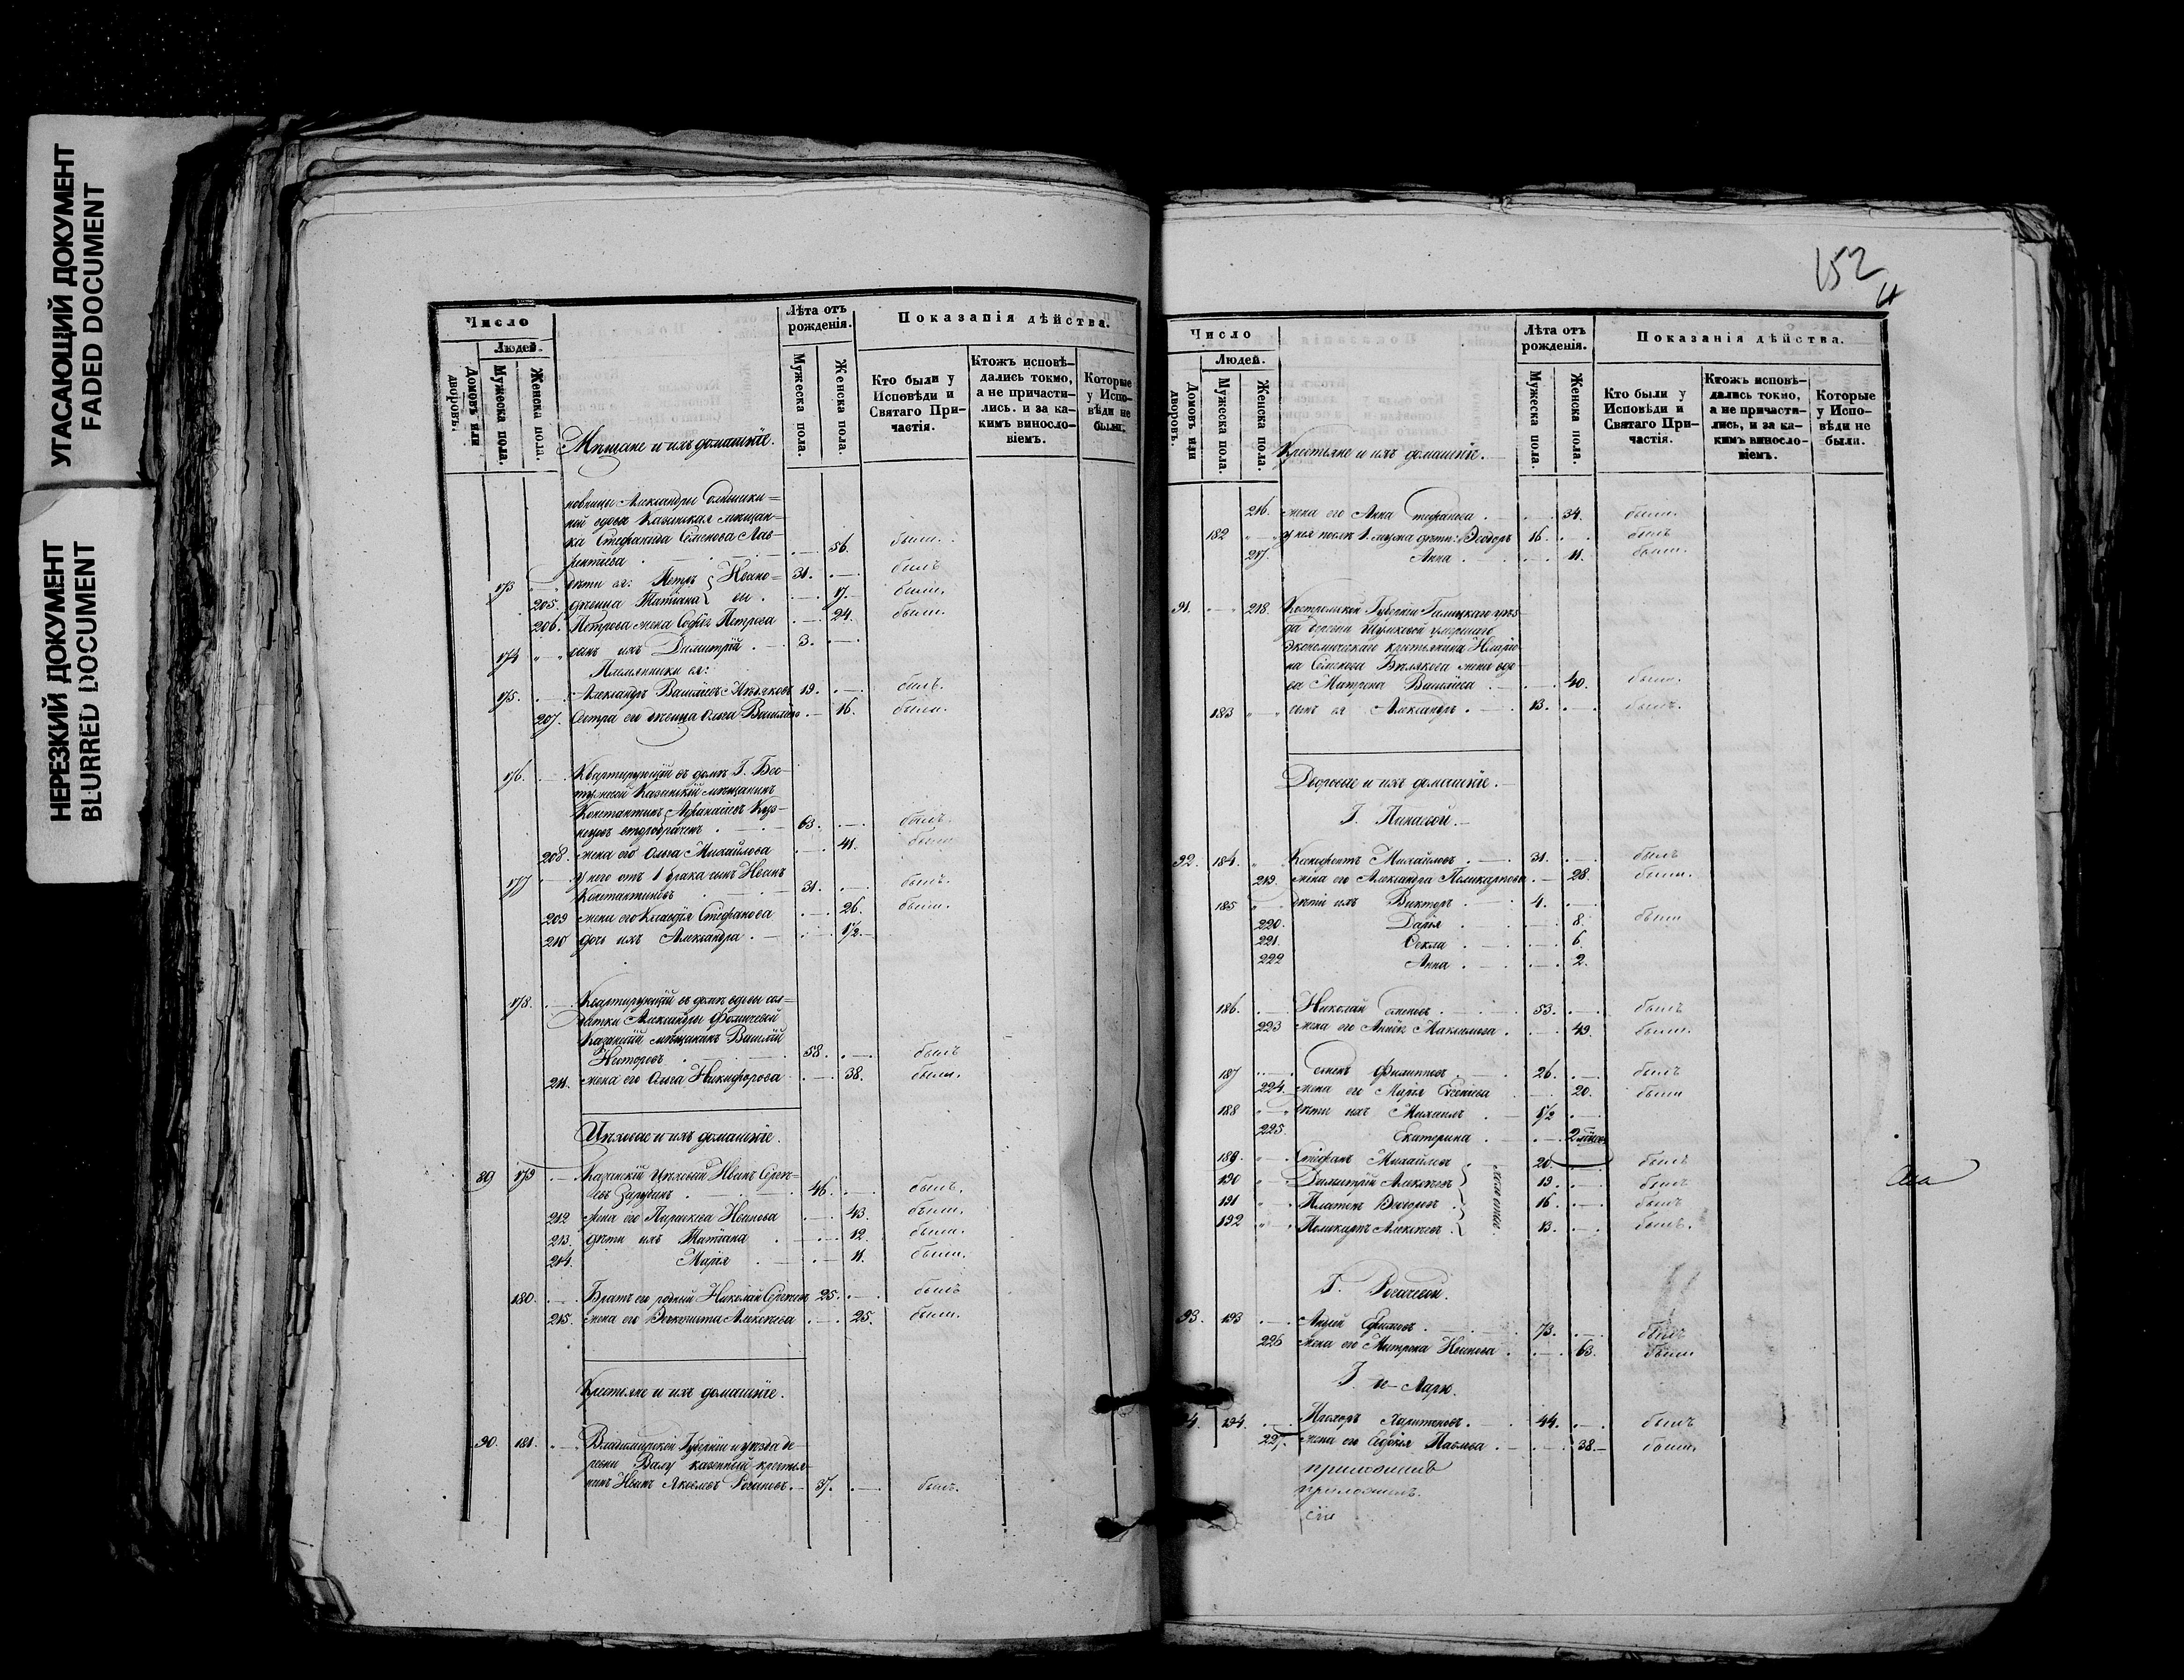 УГАСАЮЩИЙ ДОКУМЕНТ
FADED DOCUMENT
НЕРЕЗКИЙ ДОКУМЕНТ
BLURRED DOCUMENT
Число
Людей.
Домовъ или дворовъ.
Мужеска пола.
Женска пола.
Мѣщане и ихъ домашніе.
Лѣта отъ рожденія.
Мужеска пола.
Женска пола.
Показанія дѣйства.
Кто были у Исповѣди и Святаго Причастія.
Ктожъ исповѣдались токмо, а не причастились. и за какимъ винословіемъ.
Которые у Исповѣди не были.
Александры
ной вдовы Казанская мѣщан=
ка Стефанида Семенова Лав=
рентіева 56. была.
173 дѣти ея: Петръ Ивано= 31. былъ
205. дѣвица Татіана вы 17. была.
206. Петрова жена Софія Петрова 24. была.
174 сынъ ихъ Димитрій 3.
Племянники ея:
175. Александръ Васильевъ 19. былъ.
207. Сестра его дѣвица Ольга 16. была.
176. Квартирующій въ домѣ Г. Бес=
тужевой Казанскій мѣщанинъ
Константинъ Афанасіевъ Куз=
нецовъ второбраченъ 63. былъ.
208. жена его Ольга Михайлова 41. была
177 у него отъ 1 брака сынъ Иванъ
Константиновъ 31. былъ.
209 жена его Клавдія Стефанова 26. была.
210 дочь ихъ Александра 1½.
178. Квартирующій въ домѣ вдовы сол=
датки Александры Фомичевой
Казанскій мѣщанинъ Василій
Несторовъ 58. былъ
211. жена его Ольга Никифорова 38. была.
Цѣховые и ихъ домашніе.
89 179 Казанскій Цѣховой Иванъ Сергѣ=
евъ 46. былъ.
212 жена его Параскева Иванова 43. была.
213. дѣти ихъ Татіана 12. была.
214. Марія 11. была.
180. Братъ его родный Николай Сергѣевъ 25. былъ
215. жена его Алексѣева 25. была.
Крестьяне и ихъ домашніе.
90. 181. Владимирской Губерніи и уѣзда де=
ревни казенный крестья=
нинъ Иванъ Яковлевъ 37. былъ.
152
Число
Людей.
Домовъ или дворовъ.
Мужеска пола.
Женска пола.
Крестьяне и ихъ домашніе.
Лѣта отъ рожденія.
Мужеска пола.
Женска пола.
Показанія дѣйства.
Кто были у Исповѣди и Святаго Причастія.
Ктожъ исповѣдались токмо, а не причастились, и за какимъ винословіемъ.
Которые у Исповѣди не были.
216. жена его Анна Стефанова 34. была.
182 у нея отъ 1. мужа дѣти: Ѳеодоръ 16. былъ
217. Анна 11. была.
91. 218. Костромской Губерніи Галицкаго уѣз=
да деревни умершаго
экономическаго крестьянина Иларіо=
на Семенова Бѣлякова жена вдо=
ва Матрона Васильева 40. была.
183 сынъ ея Александръ 13. былъ.
Дворовые и ихъ домашніе.
Г.
92. 184. Ксенофонтъ Михайловъ 31. былъ
219. жена его Александра Поликарпова 28. была.
185 дѣти ихъ Викторъ 4.
220. Дарія 8. была
221. Ѳекла 6.
222 Анна 2.
186. Николай Семеновъ 53. былъ
223 жена его Максимова 49. была.
187 Семенъ Филипповъ 26. былъ
224. жена его Марія Евгеніева 20. была
188 дѣти ихъ Михаилъ 1½
225. Екатерина 2
189. Стефанъ Михайловъ 20. былъ
190 Димитрій Алексѣевъ 19. былъ
191 Платонъ Ѳеодоровъ 16. былъ
192 Поликарпъ Алексѣевъ 13. былъ.
холостые.
Г.
93. 193 Андрей Ефимовъ 73. былъ
226 жена его Матрона Иванова 63. была
Г.
94. 194. Прохоръ Харитоновъ 44. былъ
227. жена его Евдокія Павлова 38. была.